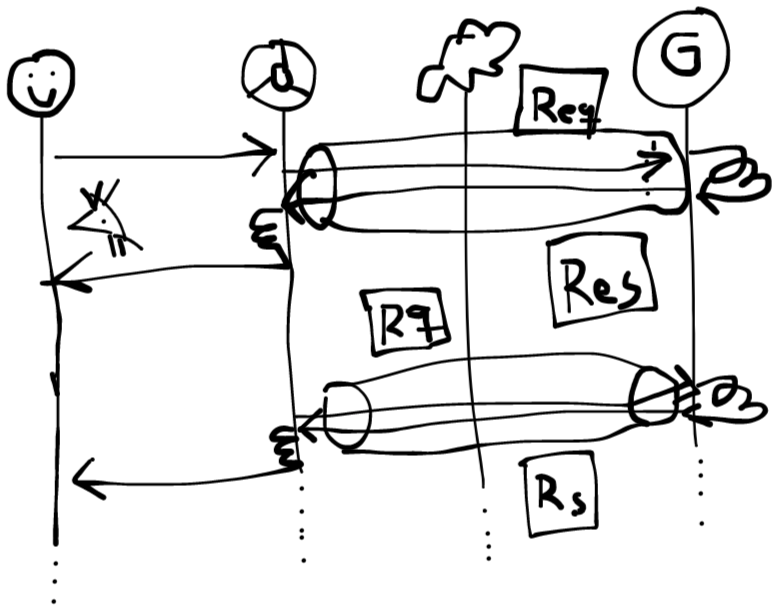 G
Req
Res
Rq
Rs